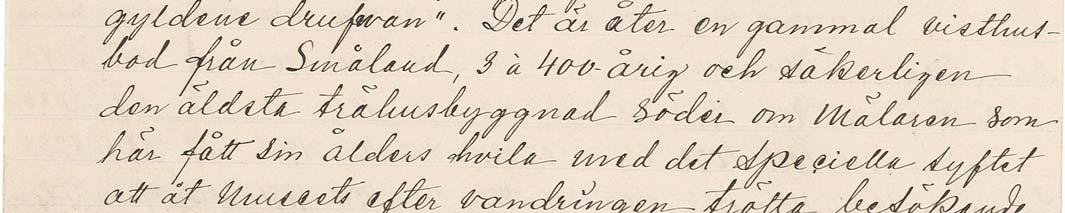 gyldene drufvan". Det är åter en gammal visthus-
bod från Småland, 3 à 400-årig och säkerligen
den äldsta trähusbyggnad söder om Mälaren som
här fått sin ålders hvila med det speciella syftet
att åt Museets efter vandringen trötta besökande